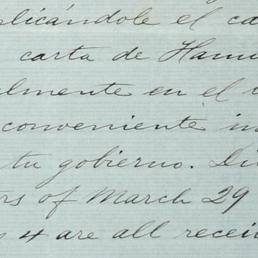 plicándole el ca
carta de Ham
lmente en el
conveniente in
tu gobierno. Di
rs of March 29
4 are all recei